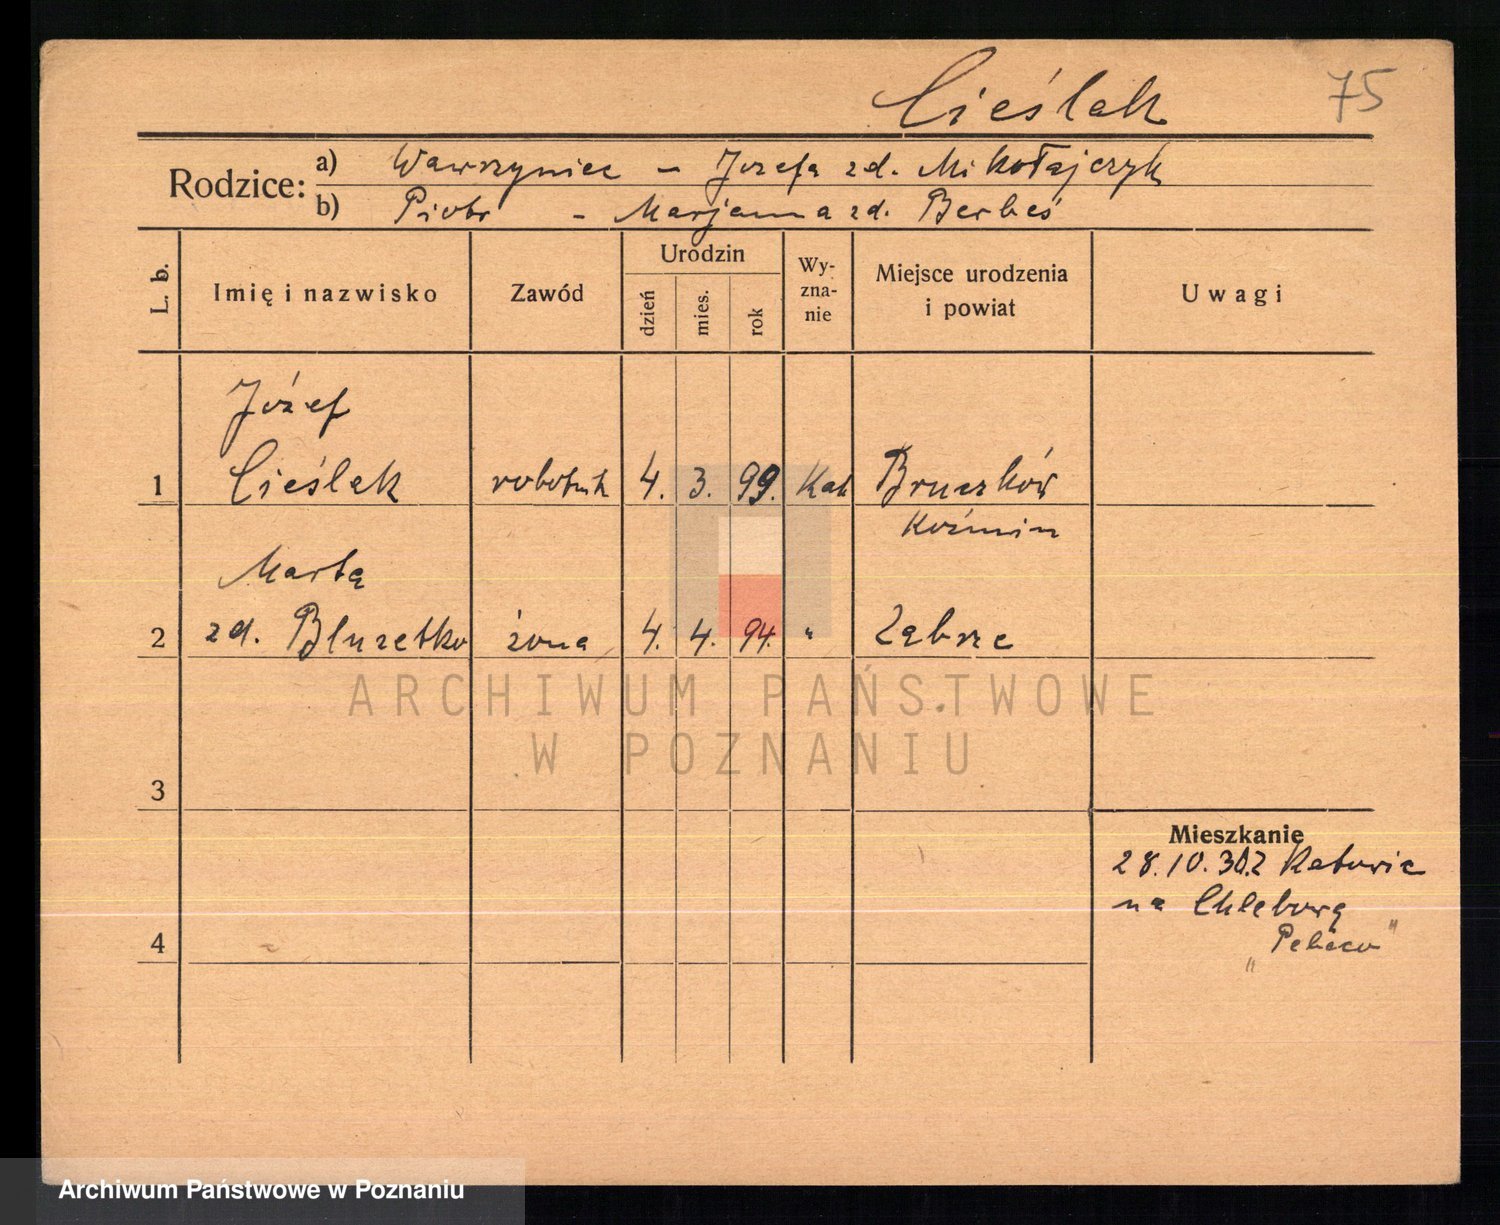 Cieślak 75
Rodzice: a) Wawrzyniec – Józefa zd. Mikołajczyk
b) Piotr - Marjanna zd. Berbeś
L. b. Imię i nazwisko Zawód Urodzin dzień mies. rok Wy-zna-nie Miejsce urodzenia i powiat Uwagi
Józef
1 Cieślak robotnik 4. 3. 99. Kat Bruczków
Koźmin
Marta
2 zd. Bluzetko żona 4. 4. 94. " Zabrze
ARCHIWUM PAŃSTWOWE
W POZNANIU
3
Mieszkanie
28.10.30 z Katowic
na Chlebową
4 "Pebeco"
Archiwum Państwowe w Poznaniu